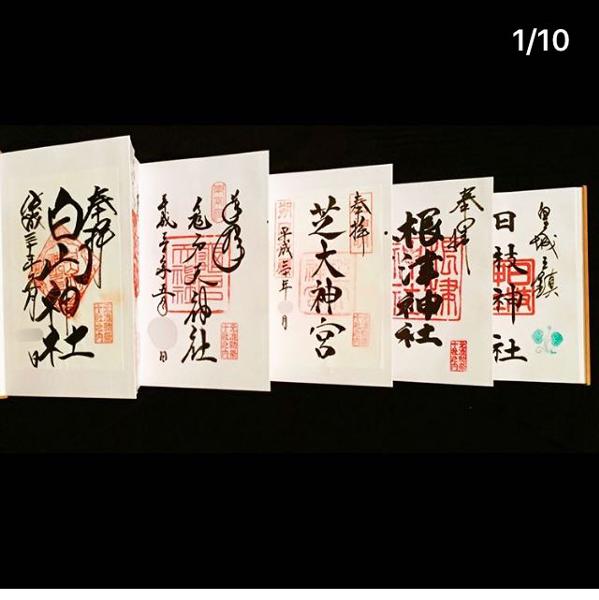 1/10
奉拝
白山神社
平成三十年
月
日
奉拝
亀戸天神社
平成三十年五月
日
奉拝
芝大神宮
平成
年
月
奉拝
根津神社
皇城之鎮
日枝神社